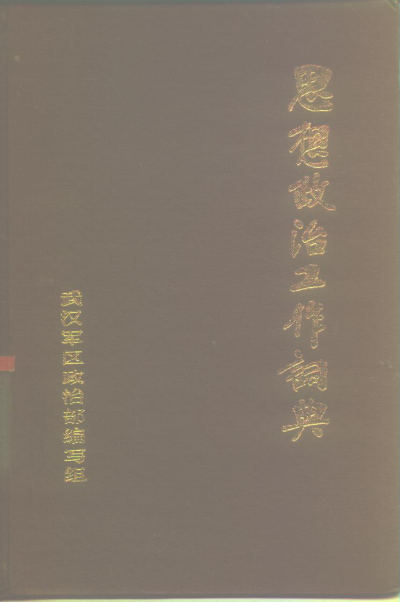 思想政治工作词典
武汉军区政治部编写组